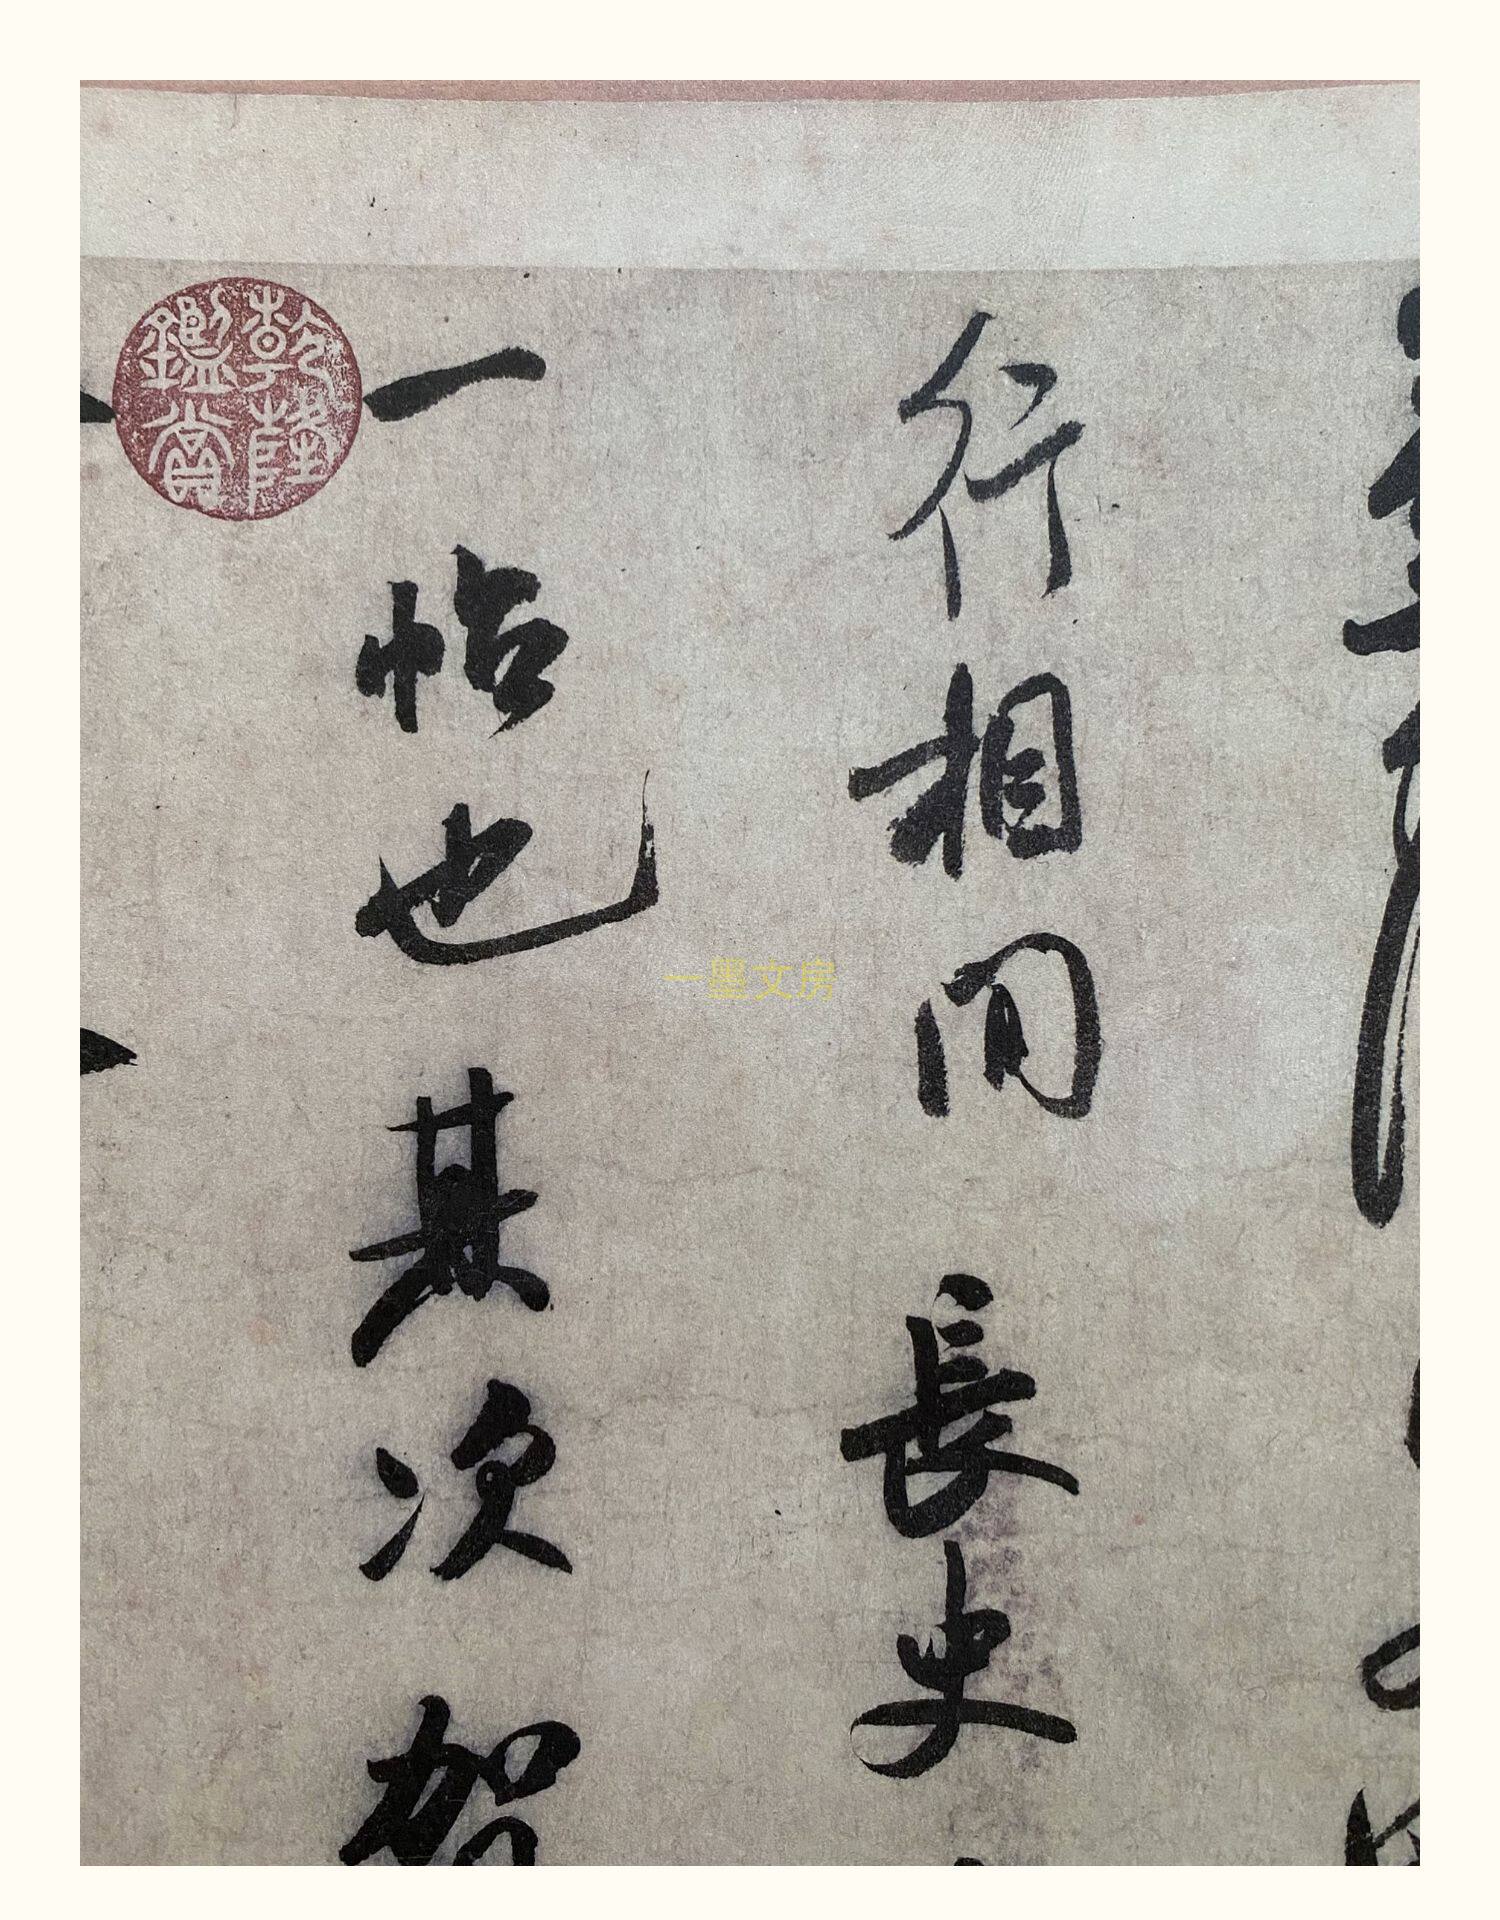 行相間長史
一帖也其次賀
乾隆鑑賞
一墨文房